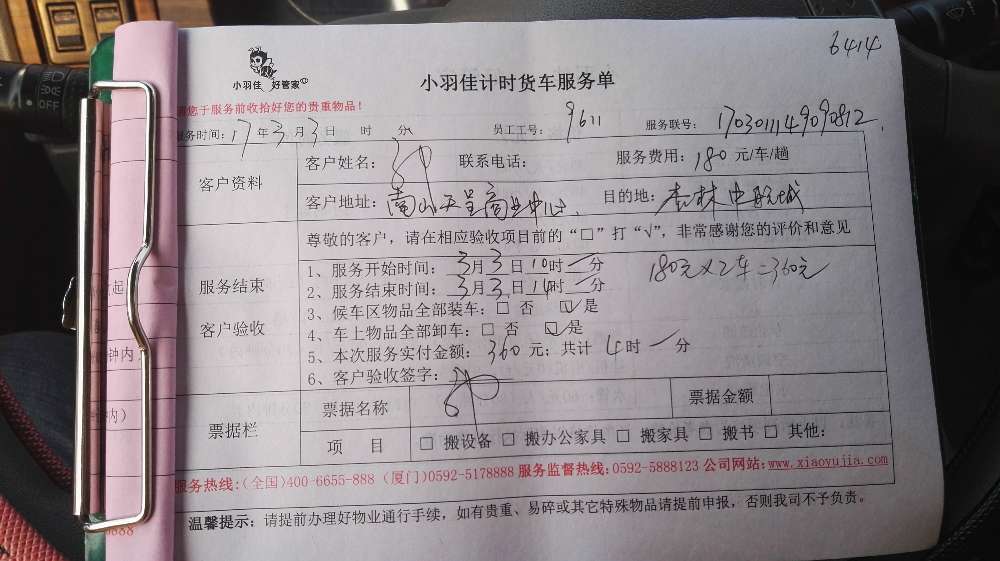 6414
小羽佳 好管家
小羽佳计时货车服务单
您于服务前收拾好您的贵重物品！
服务时间：17年3月3日 时 分 员工工号：9611 服务联号：1703011149090812
客户资料
客户姓名： 联系电话： 服务费用：180元/车/趟
客户地址：南山天呈商业中心. 目的地：杏林中航城
尊敬的客户，请在相应验收项目前的“□”打“√”，非常感谢您的评价和意见
服务结束
客户验收
1、服务开始时间：3月3日10时一分 180元×2车=360元
2、服务结束时间：3月3日14时一分
3、候车区物品全部装车：□ 否 ☑是
4、车上物品全部卸车：□ 否 ☑是
5、本次服务实付金额：360元；共计4时一分
6、客户验收签字：
票据栏
票据名称 票据金额
项 目 □ 搬设备 □ 搬办公家具 □ 搬家具 □ 搬书 □ 其他：
服务热线:(全国)400-6655-888 (厦门)0592-5178888 服务监督热线:0592-5888123 公司网站:www.xiaoyujia.com
温馨提示：请提前办理好物业通行手续，如有贵重、易碎或其它特殊物品请提前申报，否则我司不予负责。
起
钟内
内）
8888
OFF